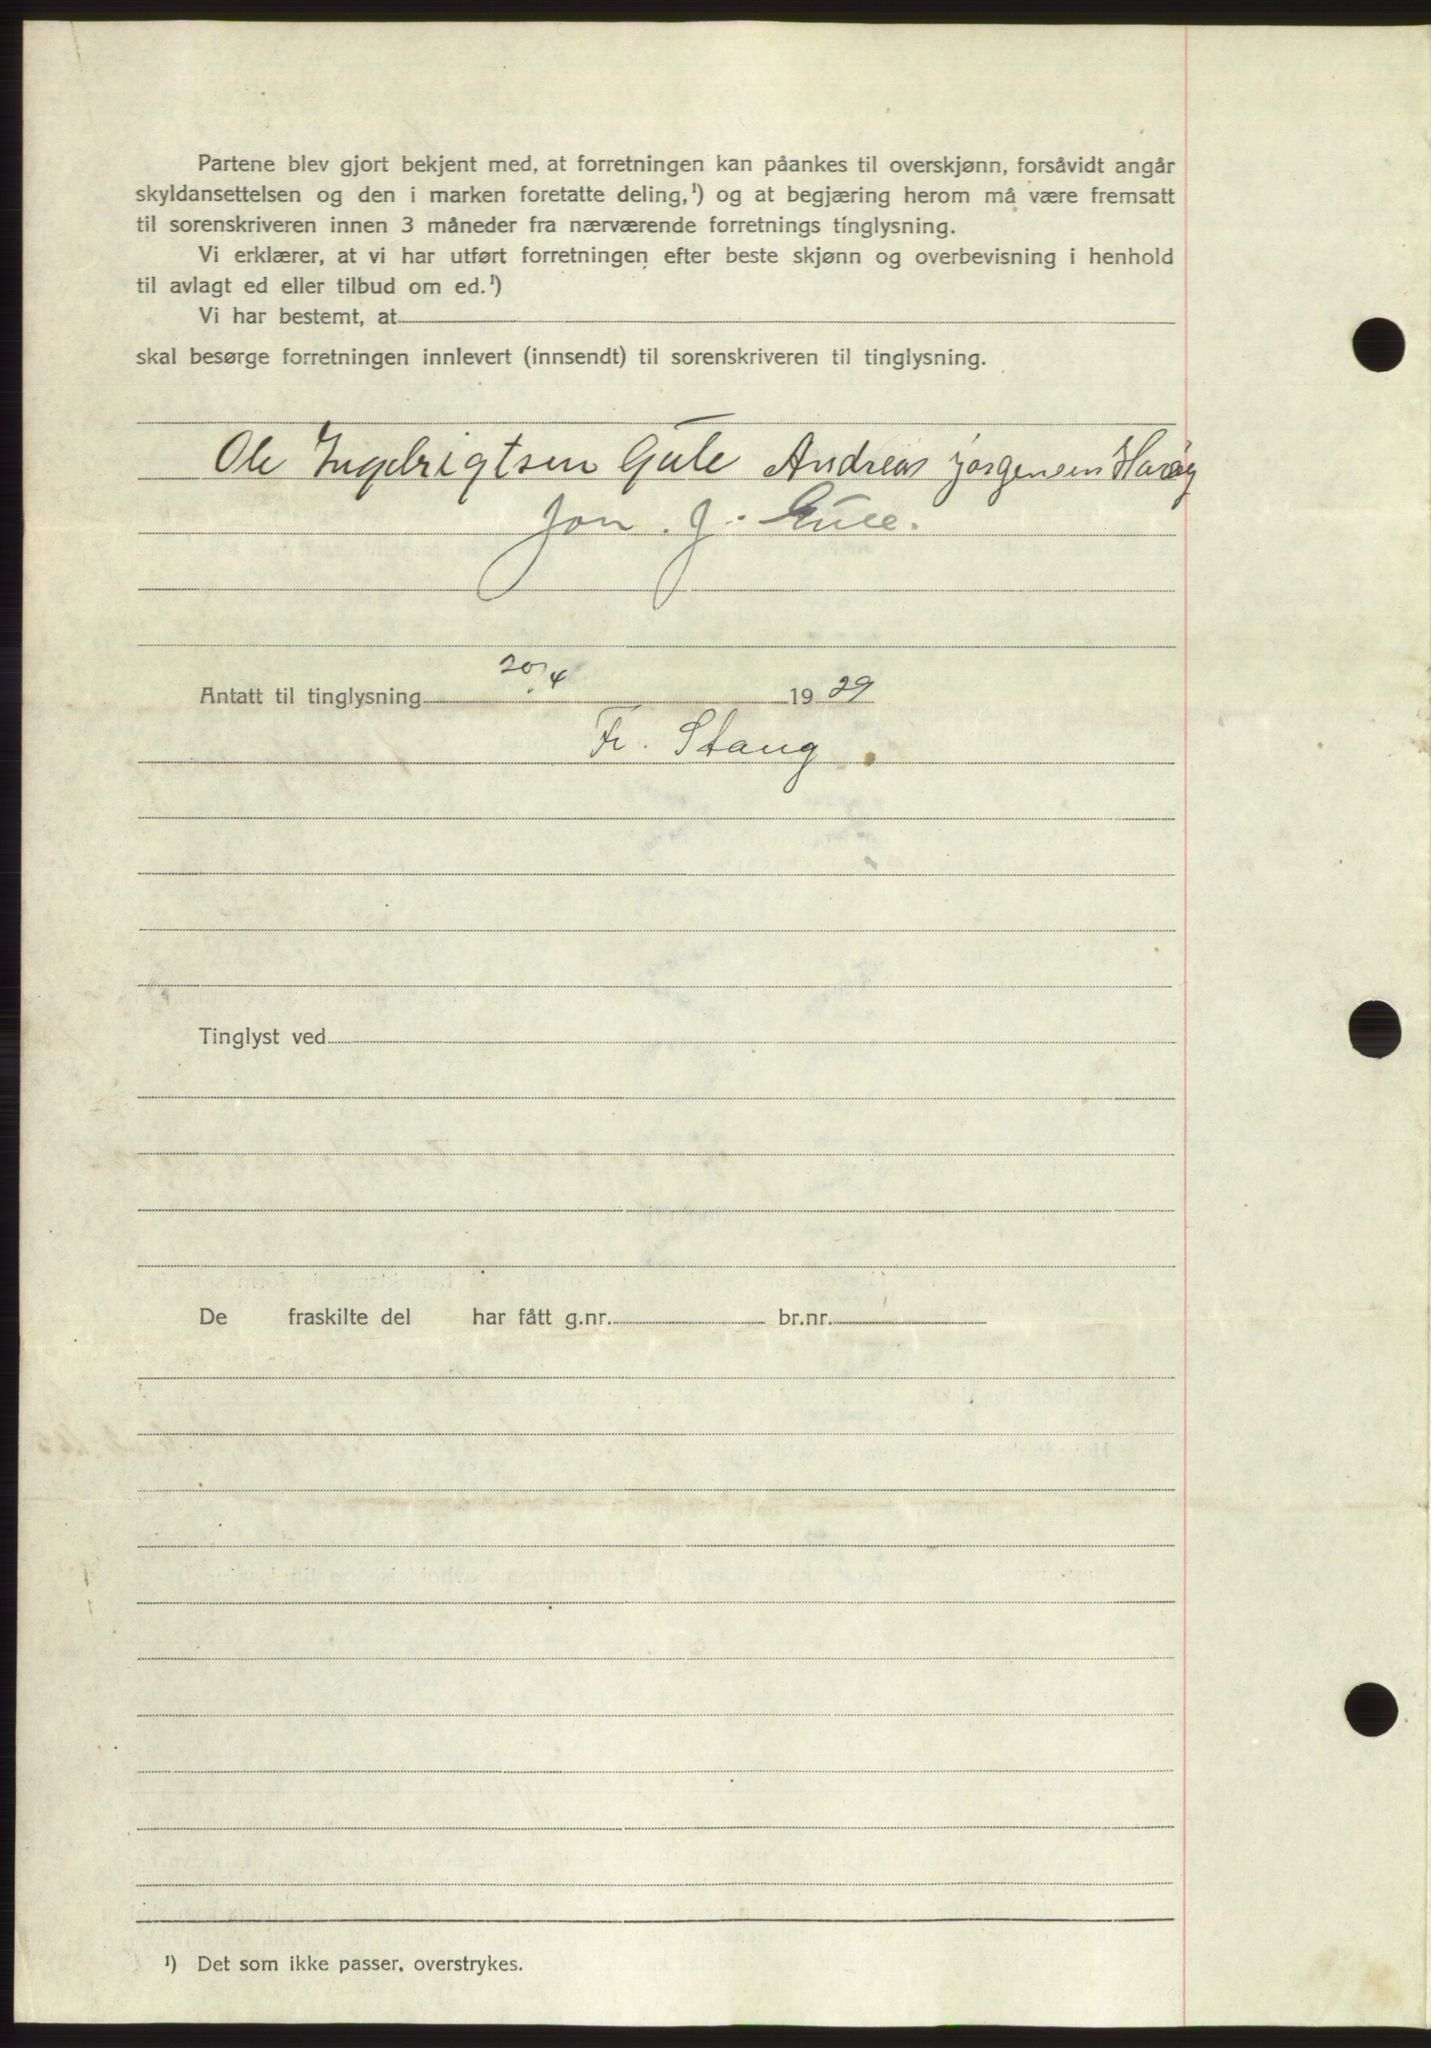 Partene blev gjort bekjent med, at forretningen kan påankes til overskjønn, forsåvidt angår
skyldansettelsen og den i marken foretatte deling,¹) og at begjæring herom må være fremsatt
til sorenskriveren innen 3 måneder fra nærværende forretnings tinglysning.
Vi erklærer, at vi har utført forretningen efter beste skjønn og overbevisning i henhold
til avlagt ed eller tilbud om ed.¹)
Vi har bestemt, at
skal besørge forretningen innlevert (innsendt) til sorenskriveren til tinglysning.
Ole Ingebrigtsen Gule Andreas Jørgensen
Jon. J. Gule.
Antatt til tinglysning 20/4 1939
Fr. Stang
Tinglyst ved
De fraskilte del har fått g.nr. br.nr.
¹) Det som ikke passer, overstrykes.